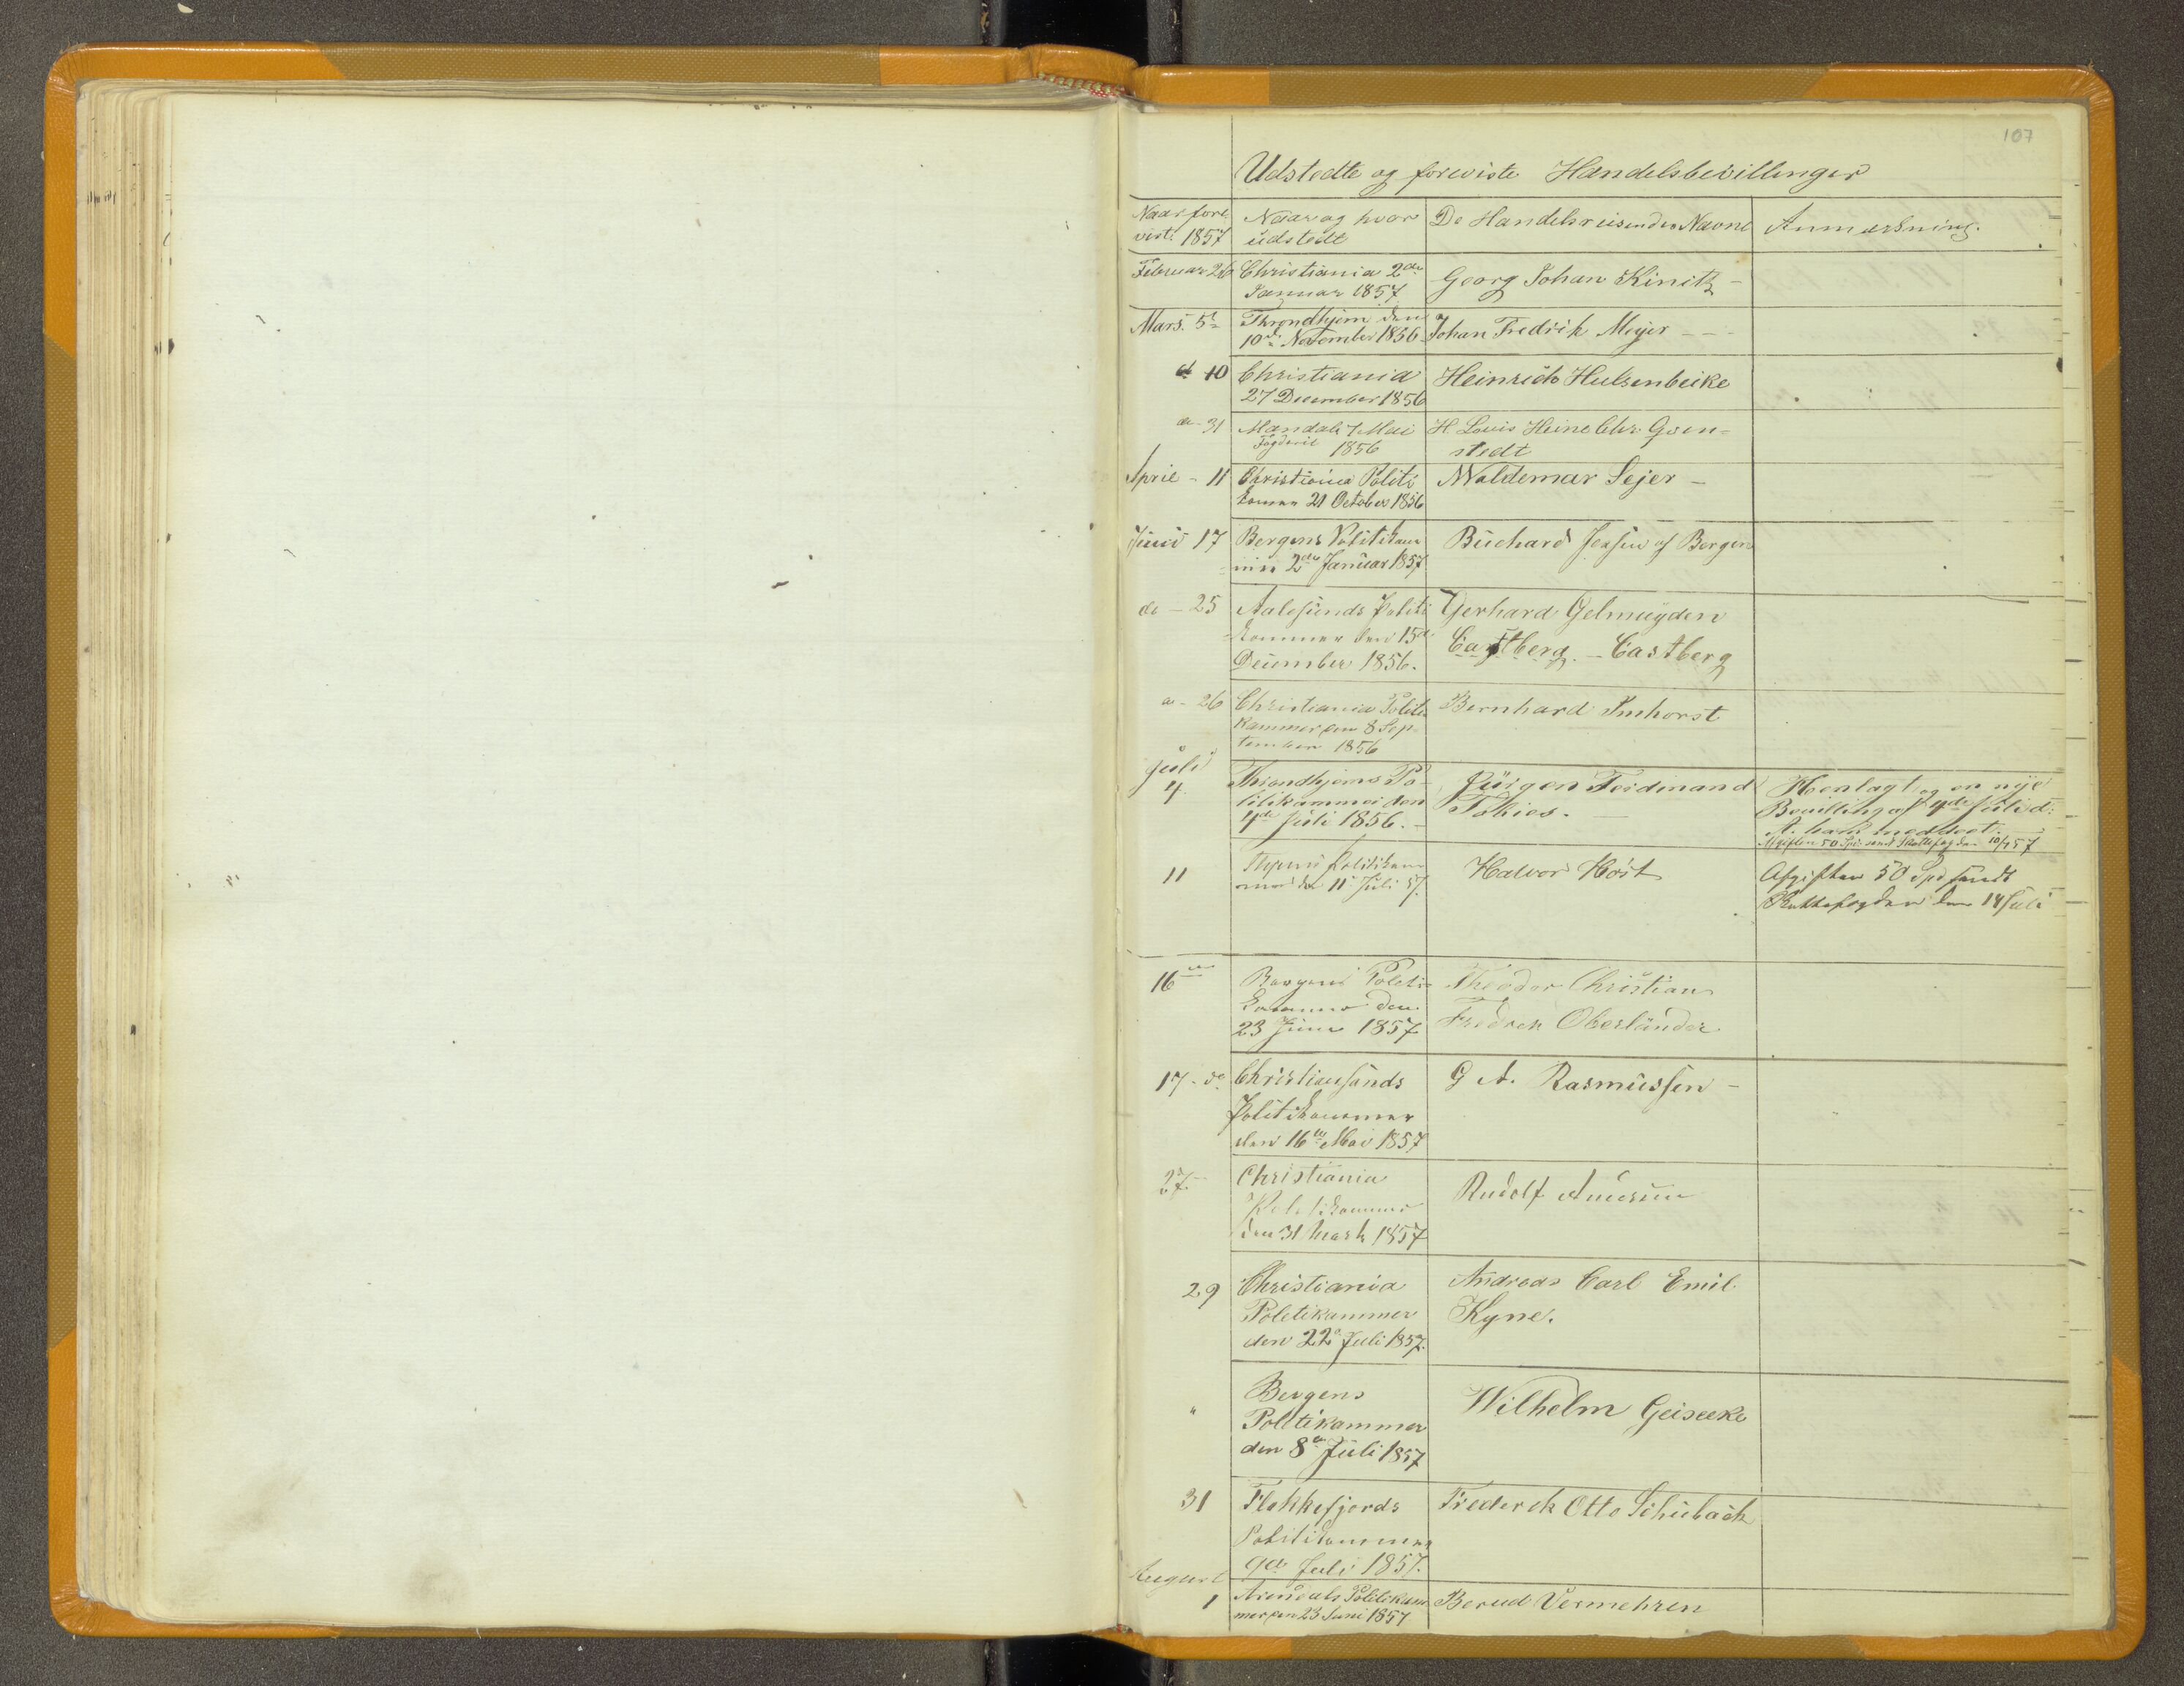 107
Udstedte og foreviste Handelsbevillinger
Naar fore
vist. 1857
Naar og hvor
udstedt
De Handelsreisendes Navne
Anmærkning.
Februar 26
Christiania 2den
Januar 1857
Georg Johan Kinitz -
Mars. 5t
Throndhjem den
10de November 1856
Johan Fredrik Meyer - - -
d. 10
Christiania
27 December 1856
Heinrich Hulsenbeike
do - 31
Mandals 7 Mai
Fogderie 1856
H. Louis Heine Chr. Goen=
stedt
April - 11
Christiania Politi
kammer 21 October 1856
Woldemar Sejer -
Juni 17
Bergens Politikam
mer 2den Januar 1857
Buchard Jensen af Bergen
do - 25
Aalesunds Politi
kammer den 15de
December 1856.
Gerhard Gelmuyden
Castberg. - Castberg
do - 26
Christiania Politi
kammer den 8 Sep-
tember 1856
Bernhard Imhorst
Juli
4
Throndhjems Po-
litikammer den
4de Juli 1856. -
Jürgen Ferdinand
Tobies. -
Henlagt og en nye
Bevilling af 4de Juli d:
A. ham meddeelt.
Afgiften 50 Spd. sendt Skattefogden 10/7 57
11
politikam
mer den 11 Juli 57.
Halvor Høst
Afgiften 50 Spd sendt
Skattefogden den 14 Juli
16de
Bergens Politi
kammer den
23 Juni 1857
Theodor Christian
Fredrek Oberländer
17. do
Christiansands
Politikammer
den 16de Mai 1857
G A. Rasmussen -
27
Christiania
Politikammer
den 31 Marts 1857
Rudolf
29
Christiania
Politikammer
den 22de Juli 1857.
Andreas Carl Emil
Kyne.
"
Bergens
Politikammer
den 8de Juli 1857
Wilhelm Geiseeke
31
Flekkefjords
Politikammer
9de Juli 1857.
Frederek Otto Schuback
August
1
Arendals Politikam
mer den 23 Juni 1857
Berud Vermehren